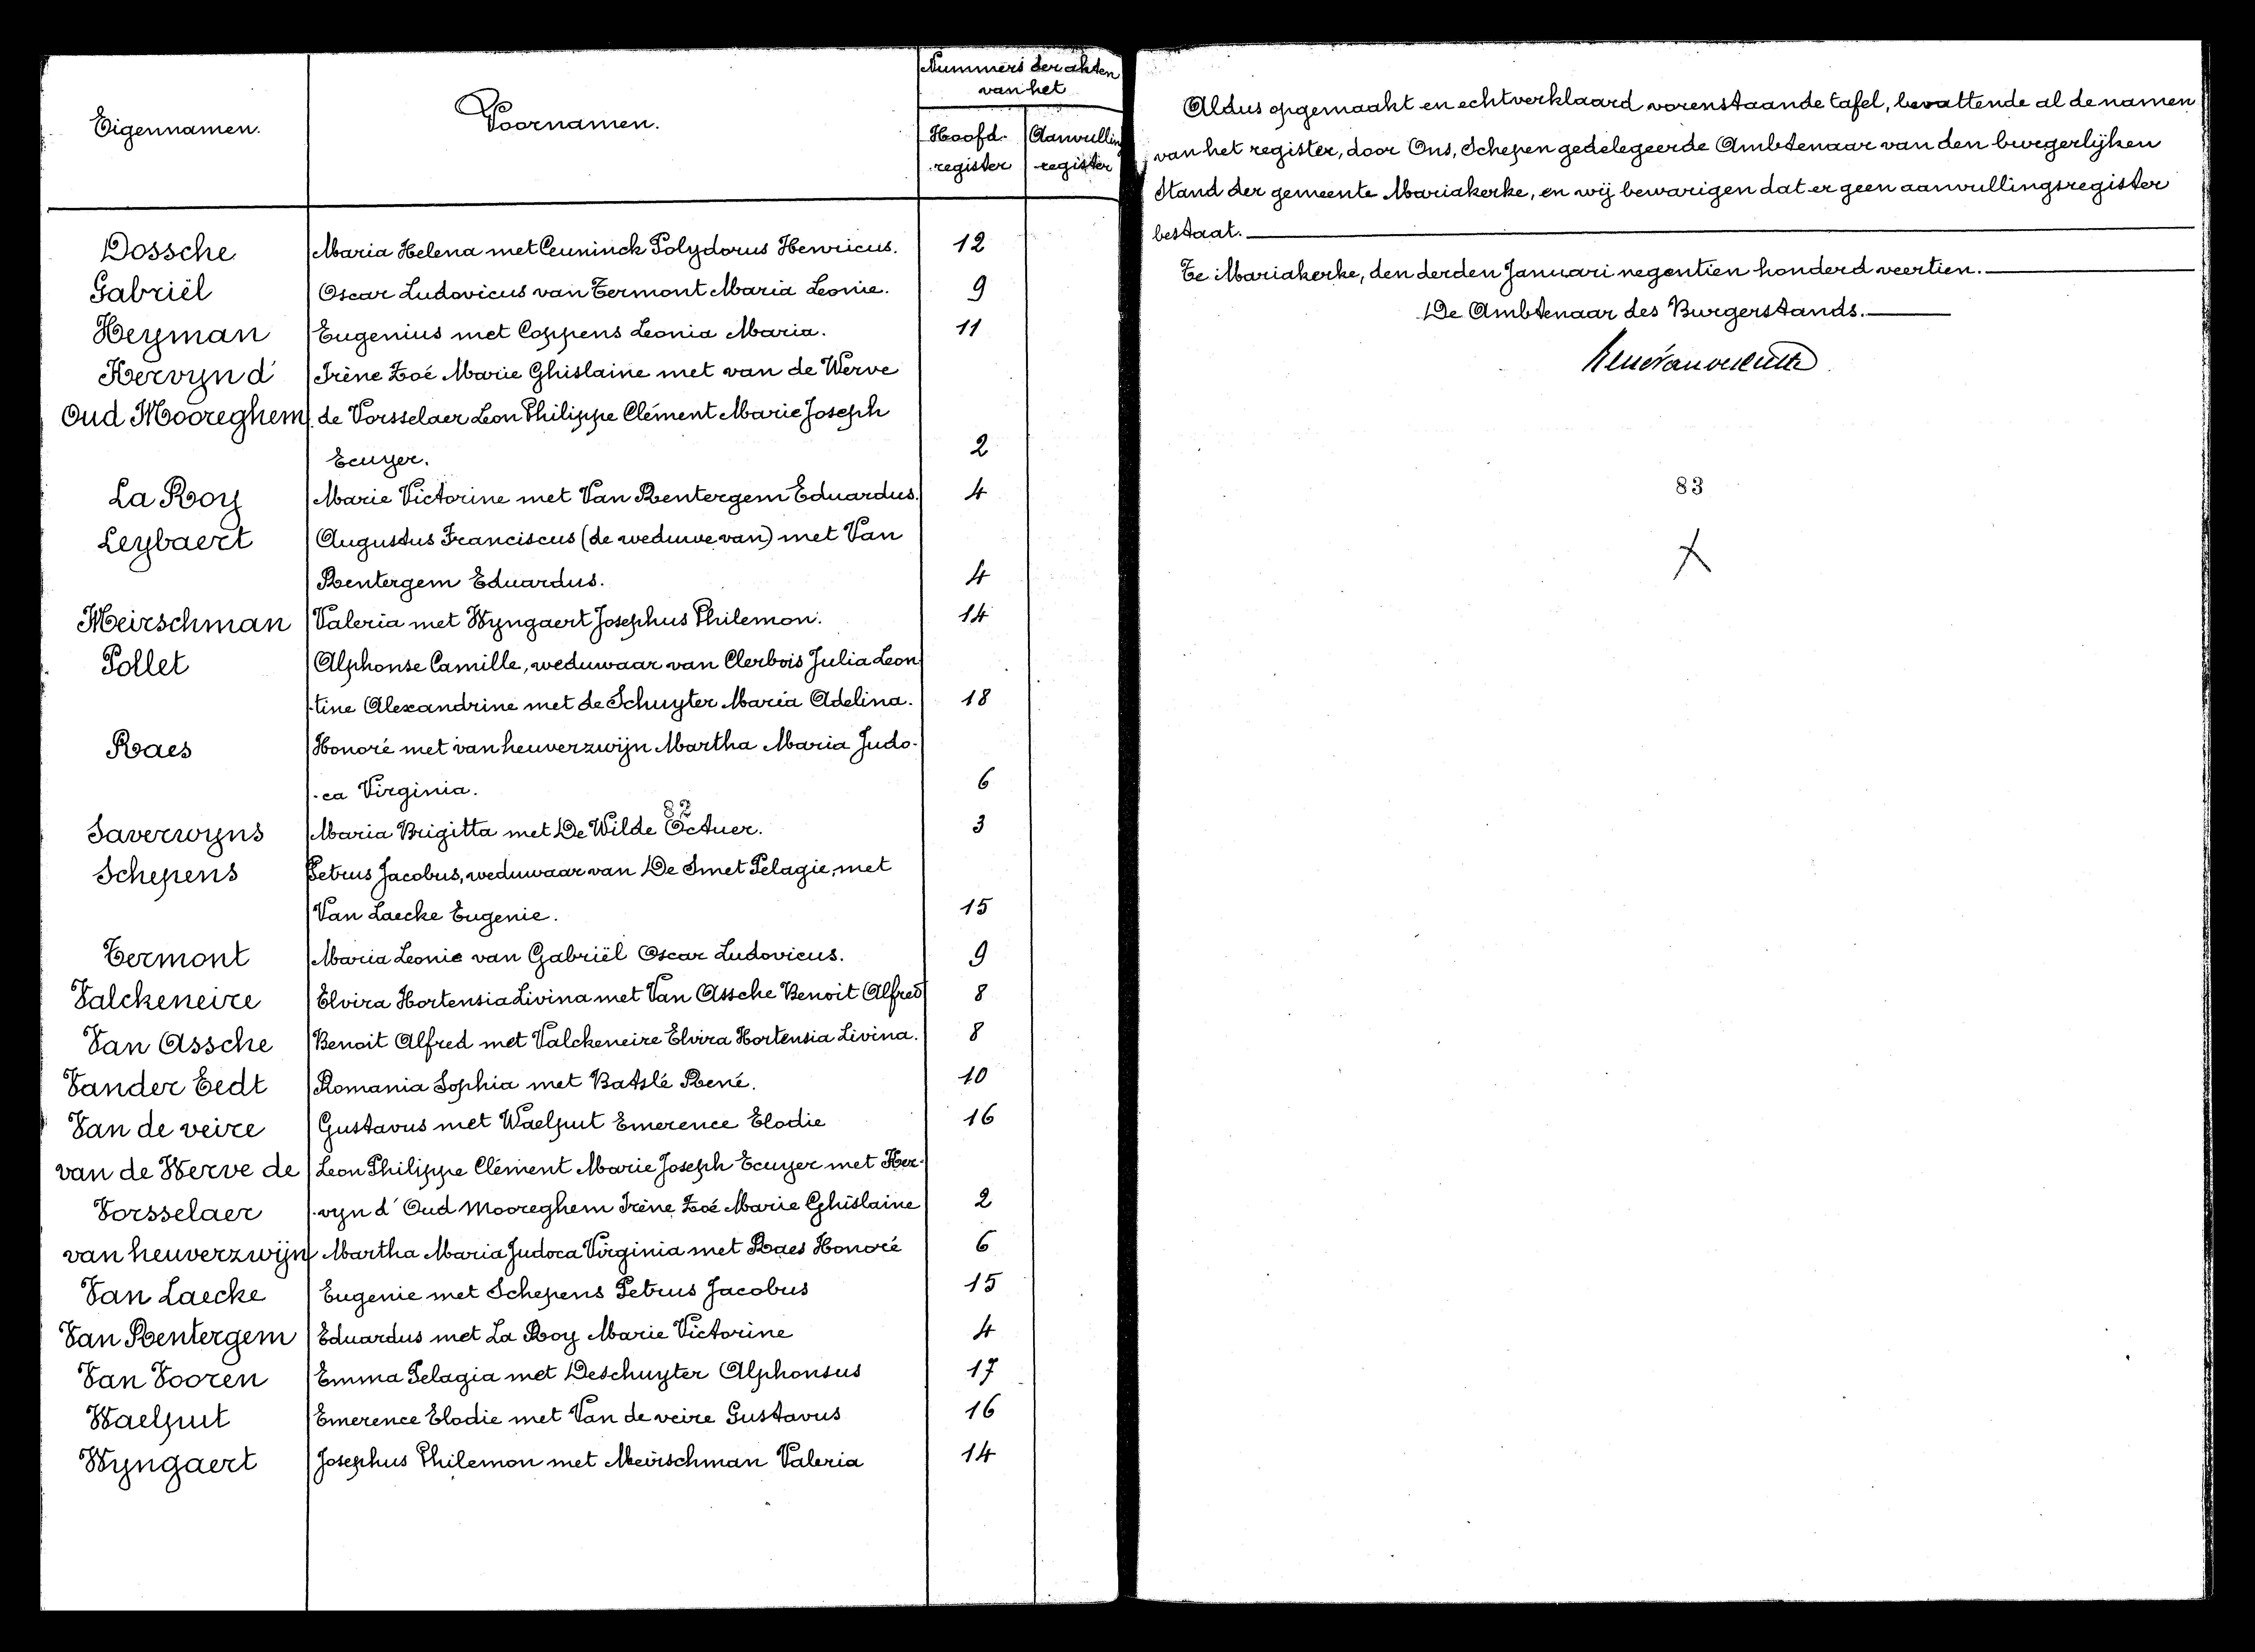 Nummers der akten
van het
Eigennamen.
Voornamen.
Hoofd- Aanvulling
register register
Dossche Maria Helena met Ceuninck Polydorus Henricus. 12
Gabriël Oscar Ludovicus van Termont Maria Leonie. 9
Heyman Eugenius met Coppens Leonia Maria. 11
Hervyn d' Irène Zoé Marie Ghislaine met van de Werve
Oud Mooreghem de Vorsselaer Leon Philippe Clément Marie Joseph
Ecuyer. 2
La Roy Marie Victorine met Van Rentergem Eduardus. 4
Leybaert Augustus Franciscus (de weduwe van) met Van
Rentergem Eduardus. 4
Meirschman Valeria met Wyngaert Josephus Philemon. 14
Pollet Alphonse Camille, weduwaar van Clerbois Julia Leon
-tine Alexandrine met de Schuyter Maria Adelina. 18
Raes Honoré met van heuverzwijn Martha Maria Judo-
-ca Virginia. 6
82
Saverwyns Maria Brigitta met De Wilde Octuer. 3
Schepens Petrus Jacobus, weduwaar van De Smet Pelagie, met
Van Laecke Eugenie. 15
Termont Maria Leonie van Gabriël Oscar Ludovicus. 9
Valckeneire Elvira Hortensia Livina met Van Assche Benoit Alfred 8
Van Assche Benoit Alfred met Valckeneire Elvira Hortensia Livina. 8
Vander Eedt Romania Sophia met Batslé René. 10
Van de veire Gustavus met Waelput Emerence Elodie 16
van de Werve de Leon Philippe Clément Marie Joseph Ecuyer met Her-
Vorsselaer -vyn d' Oud Mooreghem Irène Zoé Marie Ghislaine 2
van heuverzwijn Martha Maria Judoca Virginia met Raes Honoré 6
Van Laecke Eugenie met Schepens Petrus Jacobus 15
Van Rentergem Eduardus met La Roy Marie Victorine 4
Van Vooren Emma Pelagia met Deschuyter Alphonsus 17
Waelput Emerence Elodie met Van de veire Gustavus 16
Wyngaert Josephus Philemon met Meirschman Valeria 14
Aldus opgemaakt en echtverklaard vorenstaande tafel, bevattende al de namen
van het register, door Ons, Schepen gedelegeerde Ambtenaar van den burgerlijken
Stand der gemeente Mariakerke, en wij bewarigen dat er geen aanvullingsregister
bestaat.
Te Mariakerke, den derden Januari negentien honderd veertien.
De Ambtenaar des Burgerstands.
83